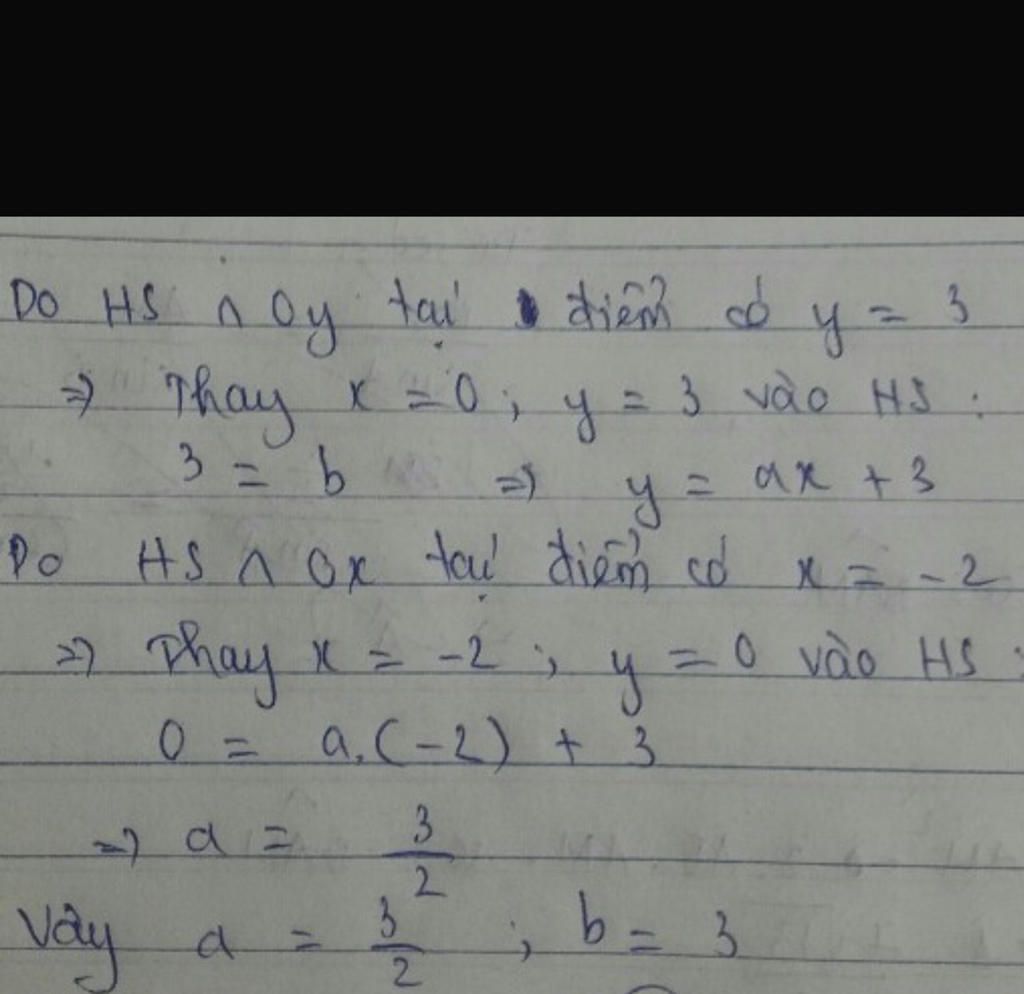 Do HS ∩ Oy tại điểm có y = 3
=> Thay x = 0 ; y = 3 vào HS :
3 = b => y = ax + 3
Do HS ∩ Ox tại điểm có x = -2
=> Thay x = -2 ; y = 0 vào HS :
0 = a.(-2) + 3
=> a = 3/2
Vậy a = 3/2 ; b = 3